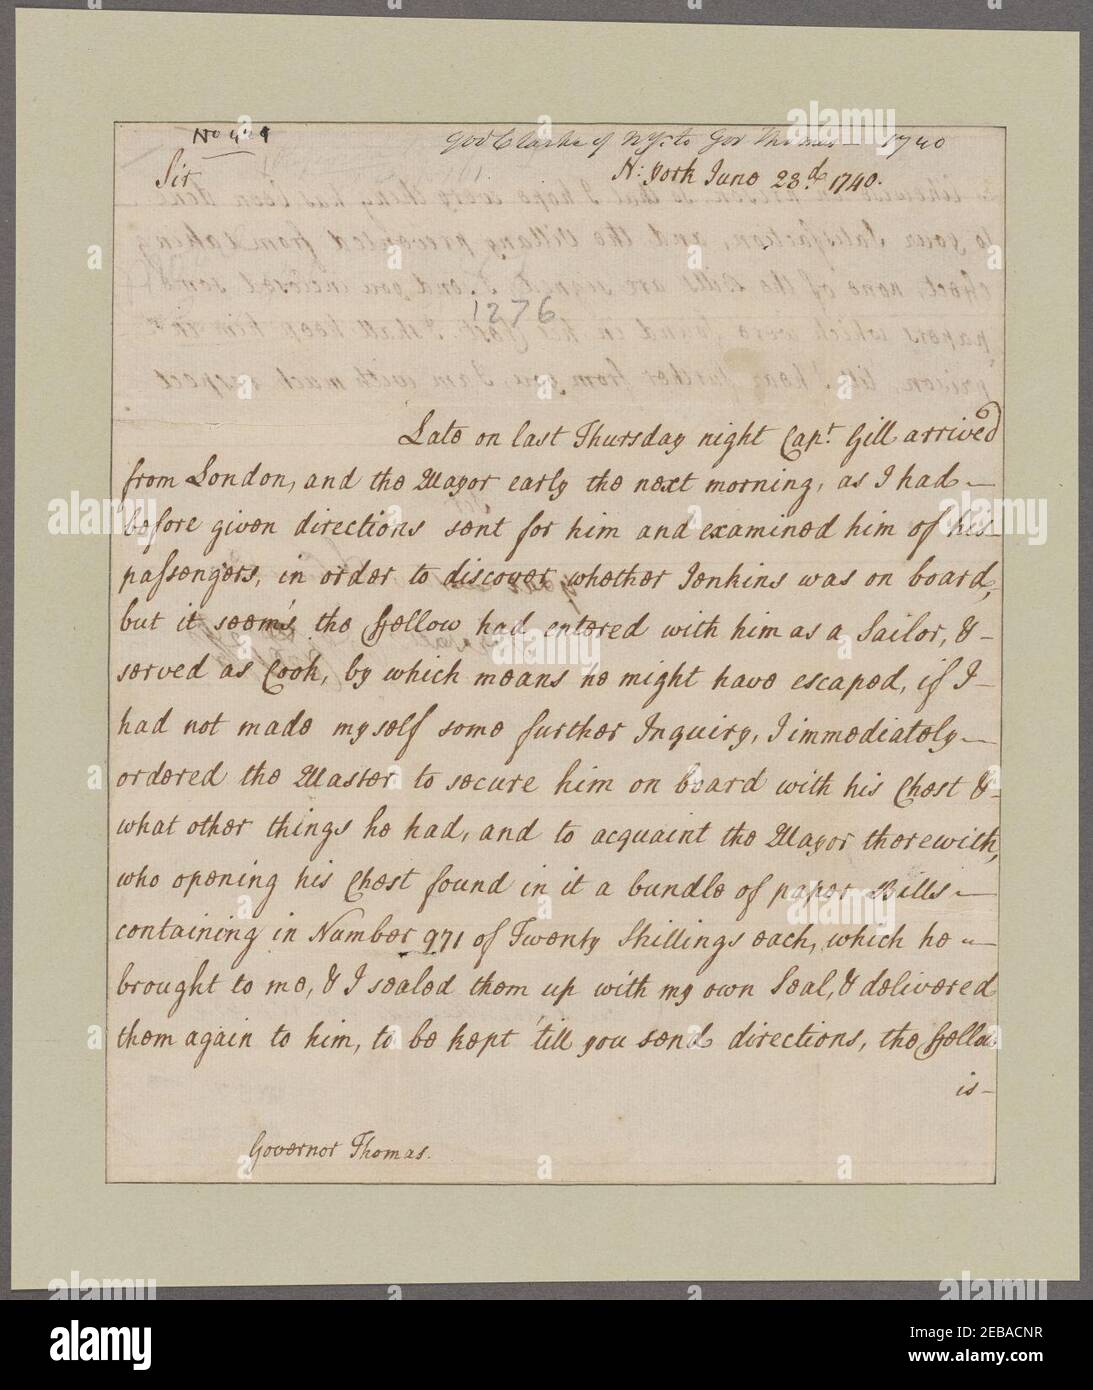 No 429
Govr Clarke of N York to Gov Thomas — 1740
Sir
N: York June 23.d 1740.
1276
Late on last Thursday night Cap.t Gill arrived
from London, and the Mayor early the next morning, as I had —
before given directions sent for him and examined him of his
passengers, in order to discover whether Jenkins was on board,
but it seem's the ffellow had entered with him as a Sailor, & -
served as Cook, by which means he might have escaped, if I -
had not made my self some further Inquiry, I immediately —
ordered the Master to secure him on board with his Chest & -
what other things he had, and to acquaint the Mayor therewith,
who opening his Chest found in it a bundle of paper Bills —
containing in Number 971 of Twenty Shillings each, which he —
brought to me, & I sealed them up with my own Seal, & delivered
them again to him, to be kept 'till you send directions, the ffellow
is -
Governor Thomas.
alamy
Image ID: 2EBACNR
www.alamy.com